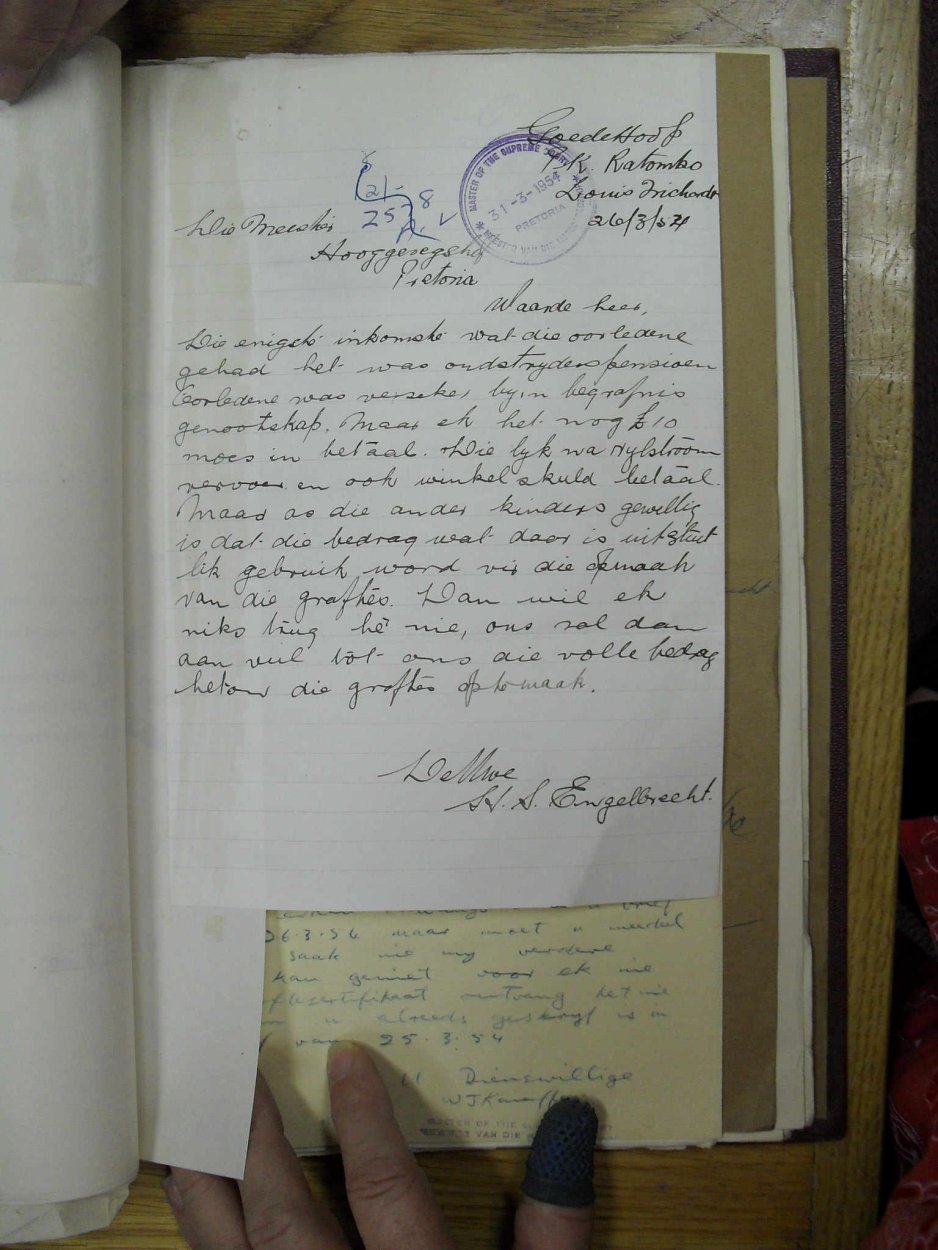 GoedeHoof
P.K. Ratombo
Louis Trichardt
26/3/54
MASTER OF THE SUPREME COURT
31-3-1954
PRETORIA
MEESTER VAN DIE
25
8
Die Meester
Hooggeregshof
Pretoria
Waarde heer,
Die enigste inkomste wat die oorledene
gehad het was oudstryderspensioen
Oorledene was verseker by 'n begrafnis
genootskap. Maar ek het nog £10
moes in betaal. Die lyk na Nylstroom
vervoer en ook winkel skuld betaal.
Maar as die ander kinders gewillig
is dat die bedrag wat daar is uitsluit
lik gebruik word vir die opmaak
van die grafte. Dan wil ek
niks trug hê nie, ons sal dan
aan vul tot ons die volle bedrag
het om die grafte op te maak.
De Uwe
H. S. Engelbrecht.
26.3.54 maar moet u meedeel
saak nie my verdere
kan geniet voor ek nie
sertifikaat ontvang het nie
u alreeds geskryf is in
van 25.3.54
U Dienswillige
MASTER OF THE
VAN DIE